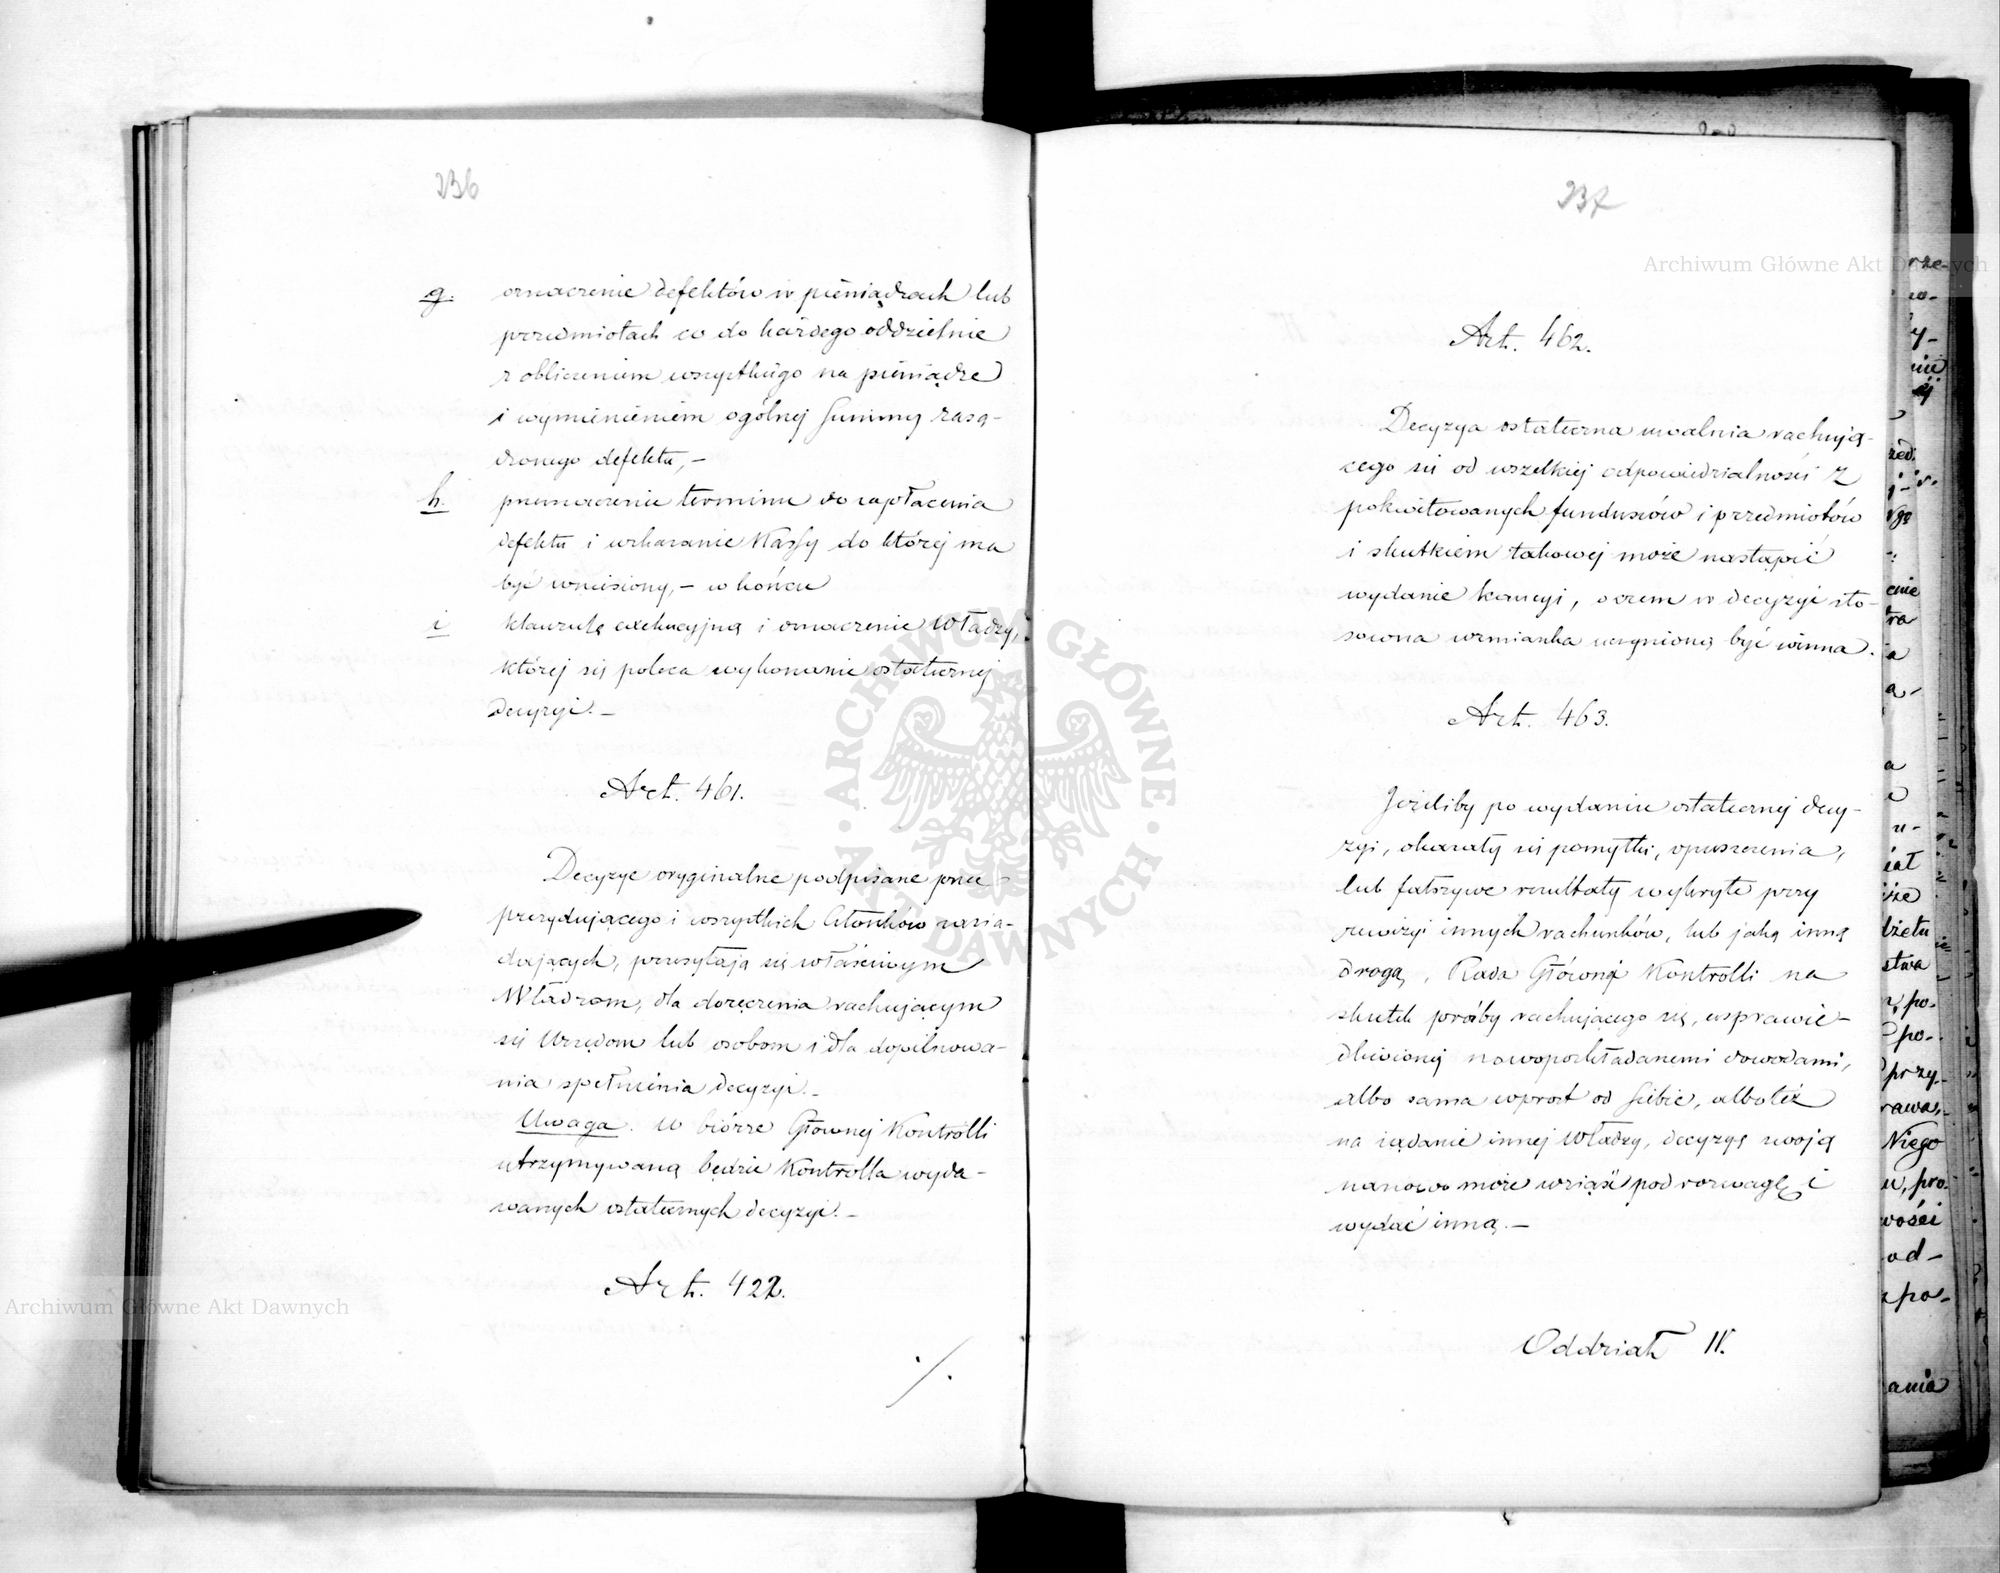 236
g. oznaczenie defektów w pieniądzach lub
przedmiotach co do każdego oddzielnie
z obliczeniem wszystkiego na pieniądze
i wymienieniem ogólnej Summy zasą-
dzonego defektu, –
h. przeznaczenie terminu do zapłacenia
defektu i wskazanie Kassy do której ma
być wniesiony, – w końcu
i klauzulę exekucyjną i oznaczenie Władzy,
której się poleca wykonanie ostatecznej
decyzyi. –
Art. 461.
Decyzye oryginalne podpisane przez
prezydującego i wszystkich Członków zasia-
dających, przesyłają się właściwym
Władzom, dla doręczenia rachującym
się Urzędom lub osobom i dla dopilnowa-
nia spełnienia decyzyi. –
Uwaga. W biórze Głównej Kontrolli
utrzymywaną będzie Kontrolla wyda-
wanych ostatecznych decyzyi. –
Art. 422.
./.
237
Art. 462.
Decyzya ostateczna uwalnia rachują-
cego się od wszelkiej odpowiedzialności z
pokwitowanych funduszów i przedmiotów
i skutkiem takowej może nastąpić
wydanie kaucyi, o czem w decyzyi sto-
sowna wzmianka uczynioną być winna.
Art. 463.
Jeżeliby po wydaniu ostatecznej decy-
zyi, okazały się pomyłki, opuszczenia,
lub fałszywe rezultaty wykryte przy
rewizyi innych rachunków, lub jaką inną
drogą, Rada Główną Kontrolli na
skutek prośby rachującego się, usprawie-
dliwionej nowopokładanemi dowodami,
albo sama wprost od siebie, albo też
na żądanie innej Władzy, decyzyę swoją
nanowo może wziąść pod rozwagę i
wydać inną. –
Oddział IV.
Archiwum Główne Akt Dawnych
Archiwum Główne Akt Dawnych
ARCHIWUM GŁÓWNE AKT DAWNYCH